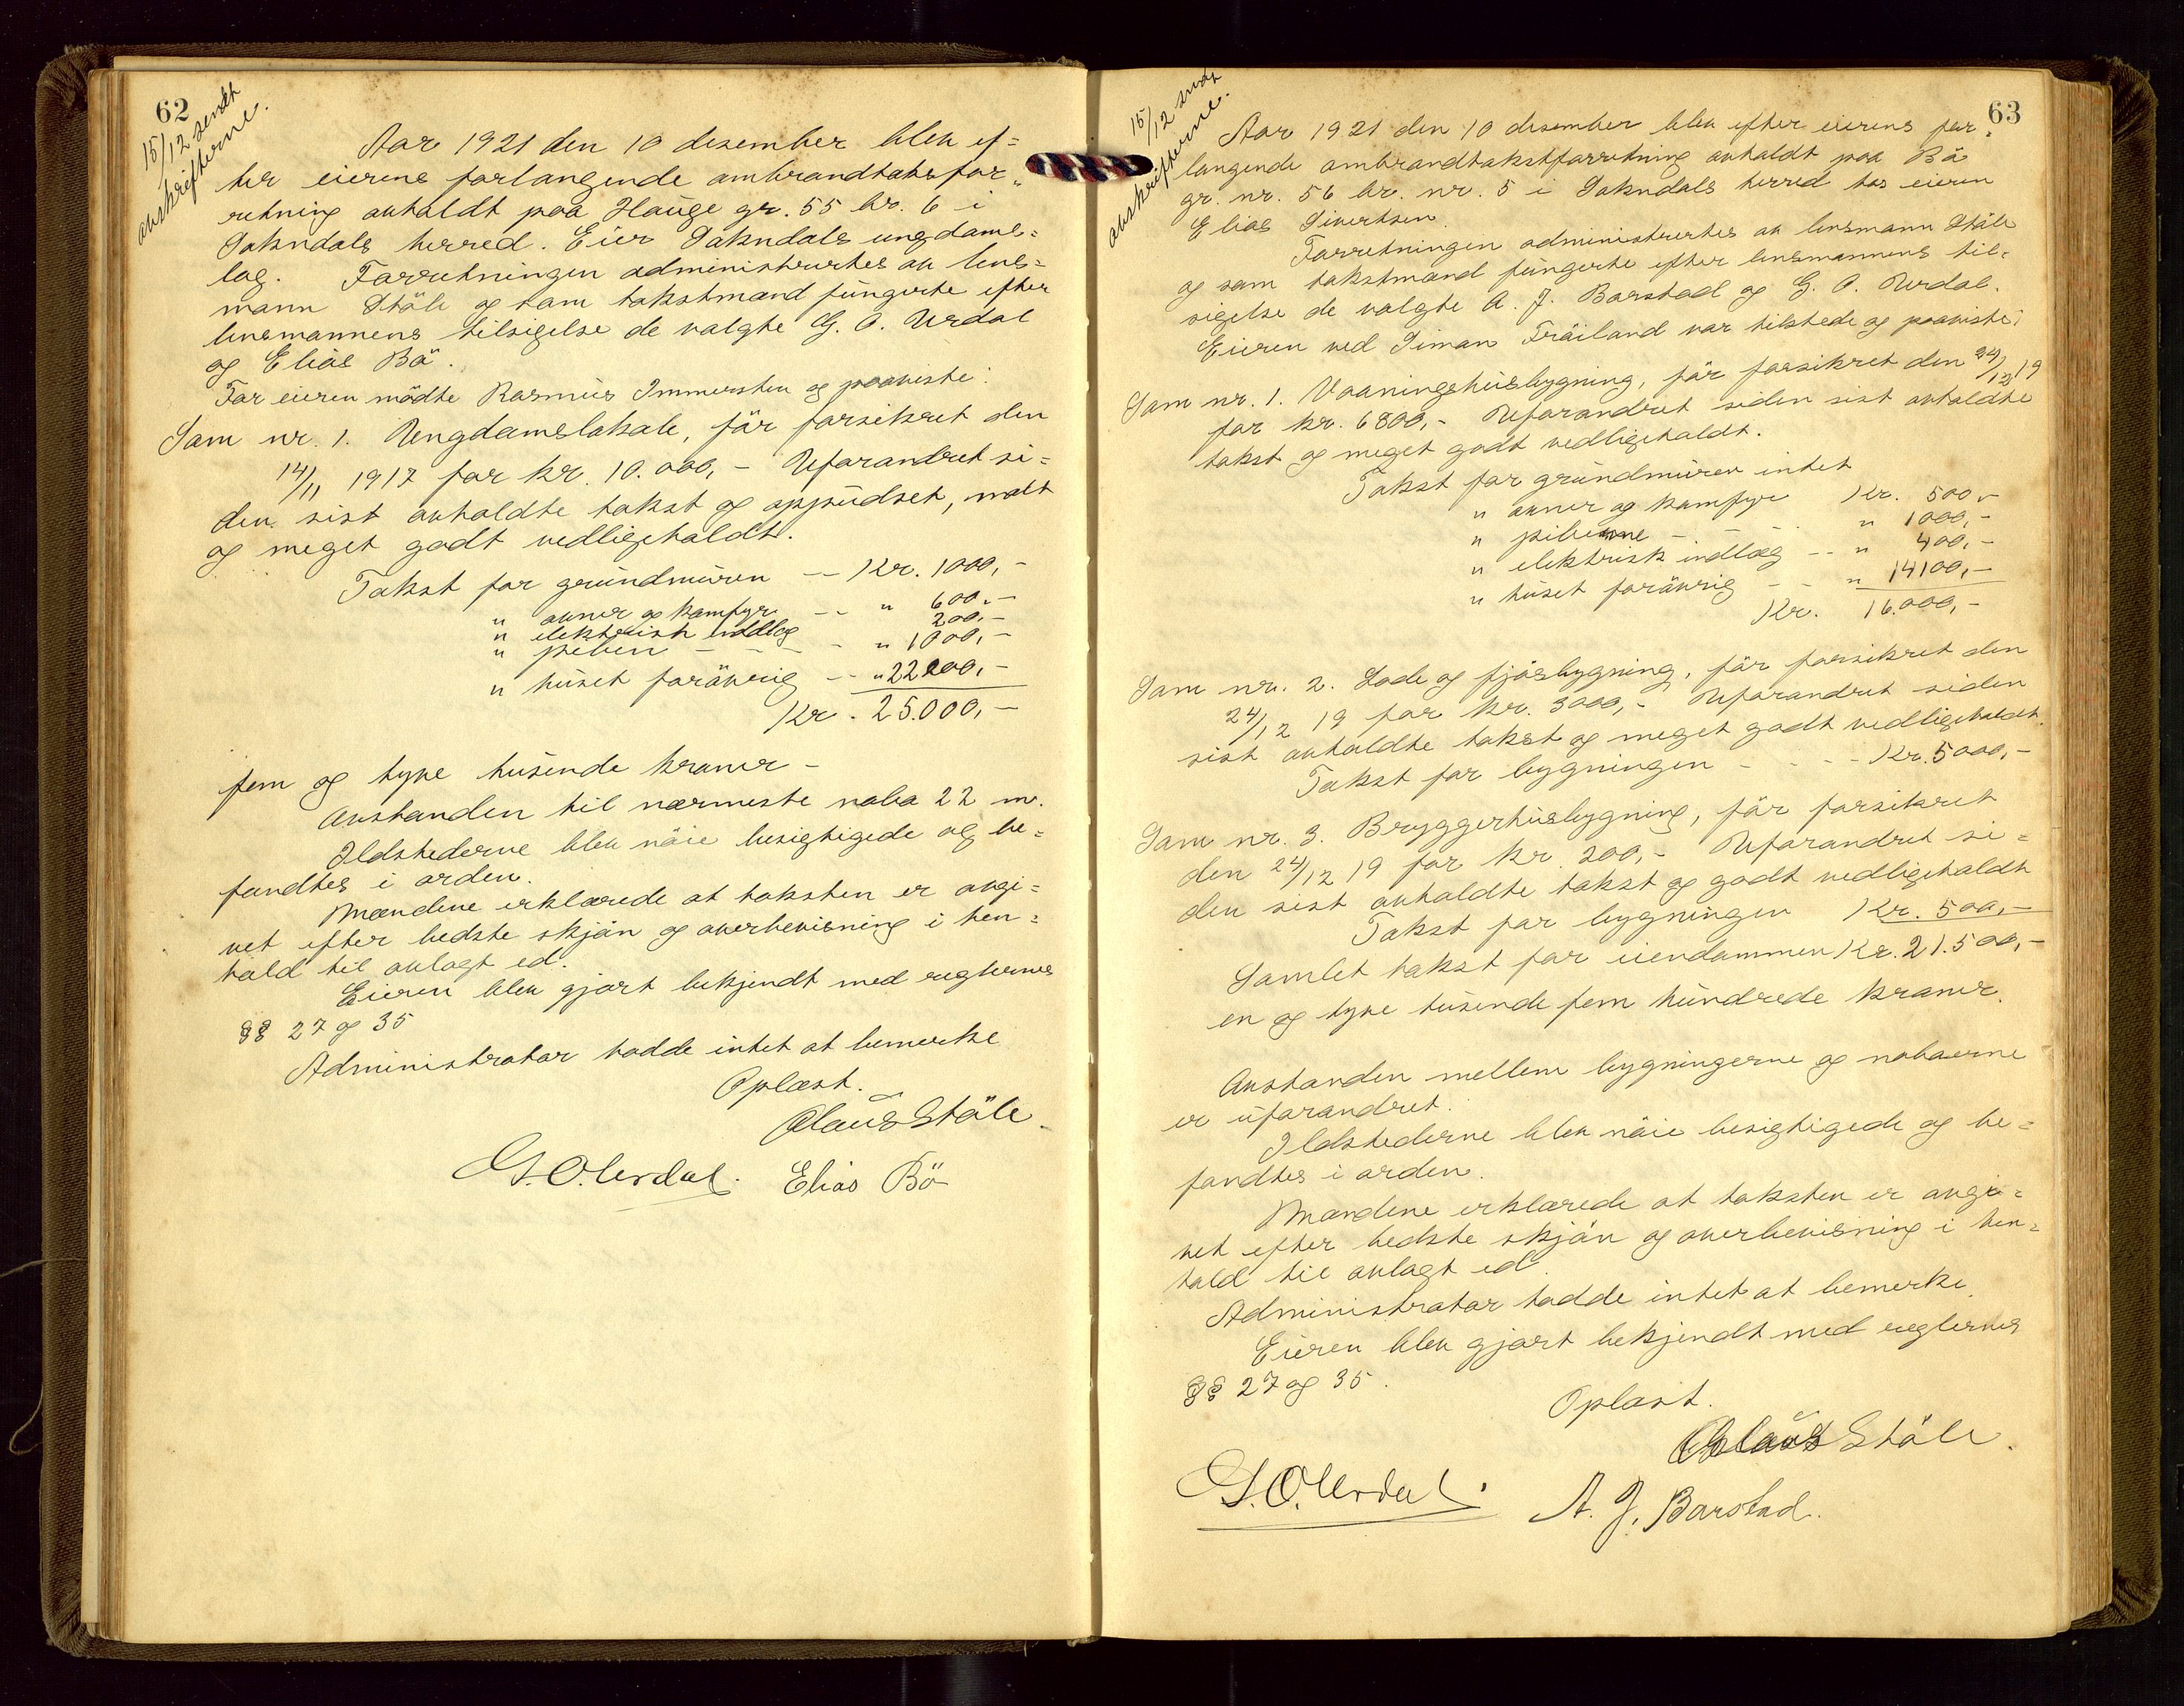 62
15/12 sendt
avskrifterne.
Aar 1921 den 10 desember blev ef=
ter eierens forlangende ombrandtaksfor=
retning avholdt paa Hauge gr. 55 br. 6 i
Sokndals herred. Eier Sokndals ungdoms=
lag. Forretningen administrertes av lens=
mann Ståle og som takstmænd fungerte efter
lensmannens tilsigelse de valgte G. O. Urdal
og Elias Bö.
For eieren mödte Rasmus Immersten og paaviste:
Som nr. 1. Ungdomslokale, för forsikret den
14/11 1917 for kr. 10.000,- Uforandret si=
den sist avholdte takst og oppudset, malt
og meget godt vedlikeholdt.
Takst for grundmuren -- Kr. 1000,-
" ovner og komfyr -- " 600,-
" elektrisk indlæg 200,-
" piben - - - - " 1000,-
" huset forövrig -- " 22200,-
Kr. 25.000,-
fem og tyve tusinde kroner -
Avstanden til nærmeste nabo 22 m.
Ildstederne blev nöie besigtigede og be=
fandtes i orden.
Mændene erklærede at taksten er avgi=
vet efter bedste skjön og overbevisning i hen=
hold til avlagt ed.
Eieren blev gjort bekjendt med reglernes
§§ 27 og 35
Administrator hadde intet at bemerke
Oplæst.
Olaus Ståle.
G. O. Urdal. Elias Bö
63
15/12 sendt
avskrifterne.
Aar 1921 den 10 desember blev efter eierens for=
langende ombrandtakstforretning avholdt paa Bö
gr. nr. 56 br. nr. 5 i Sokndals herred hos eieren
Elias Sivertsen.
Forretningen administrertes av lensmann Ståle
og som takstmænd fungerte efter lensmannens til=
sigelse de valgte A. J. Barstad og G. O. Urdal.
Eieren ved Simon Fröiland var tilstede og paaviste:
Som nr. 1. Vaaningshusbygning, för forsikret den 24/12 19
for kr. 6800,- Uforandret siden sist avholdte
takst og meget godt vedlikeholdt.
Takst for grundmuren intet
" ovner og komfyr Kr. 500,-
" piberne - - - " 1000,-
" elektrisk indlæg -- " 400,-
" huset forövrig - - " 14100,-
Kr. 16.000,-
Som nr. 2. Lode og fjösbygning, för forsikret den
24/12 19 for kr. 3000,- Uforandret siden
sist avholdte takst og meget godt vedlikeholdt.
Takst for bygningen - - - - Kr. 5000,-
Som nr. 3. Bryggerhusbygning, för forsikret
den 24/12 19 for kr. 200,- Uforandret si=
den sist avholdte takst og godt vedlikeholdt
Takst for bygningen Kr. 500,-
Samlet takst for eiendommen Kr. 21.500,-
en og tyve tusinde fem hundrede kroner.
Avstanden mellem bygningerne og naboerne
er uforandret.
Ildstederne blev nöie besigtigede og be=
fandtes i orden.
Mændene erklærede at taksten er avgi=
vet efter bedste skjön og overbevisning i hen=
hold til avlagt ed.
Administrator hadde intet at bemerke.
Eieren blev gjort bekjendt med reglernes
§§ 27 og 35.
Oplæst.
Olaus Ståle.
G. O. Urdal. A. J. Barstad.